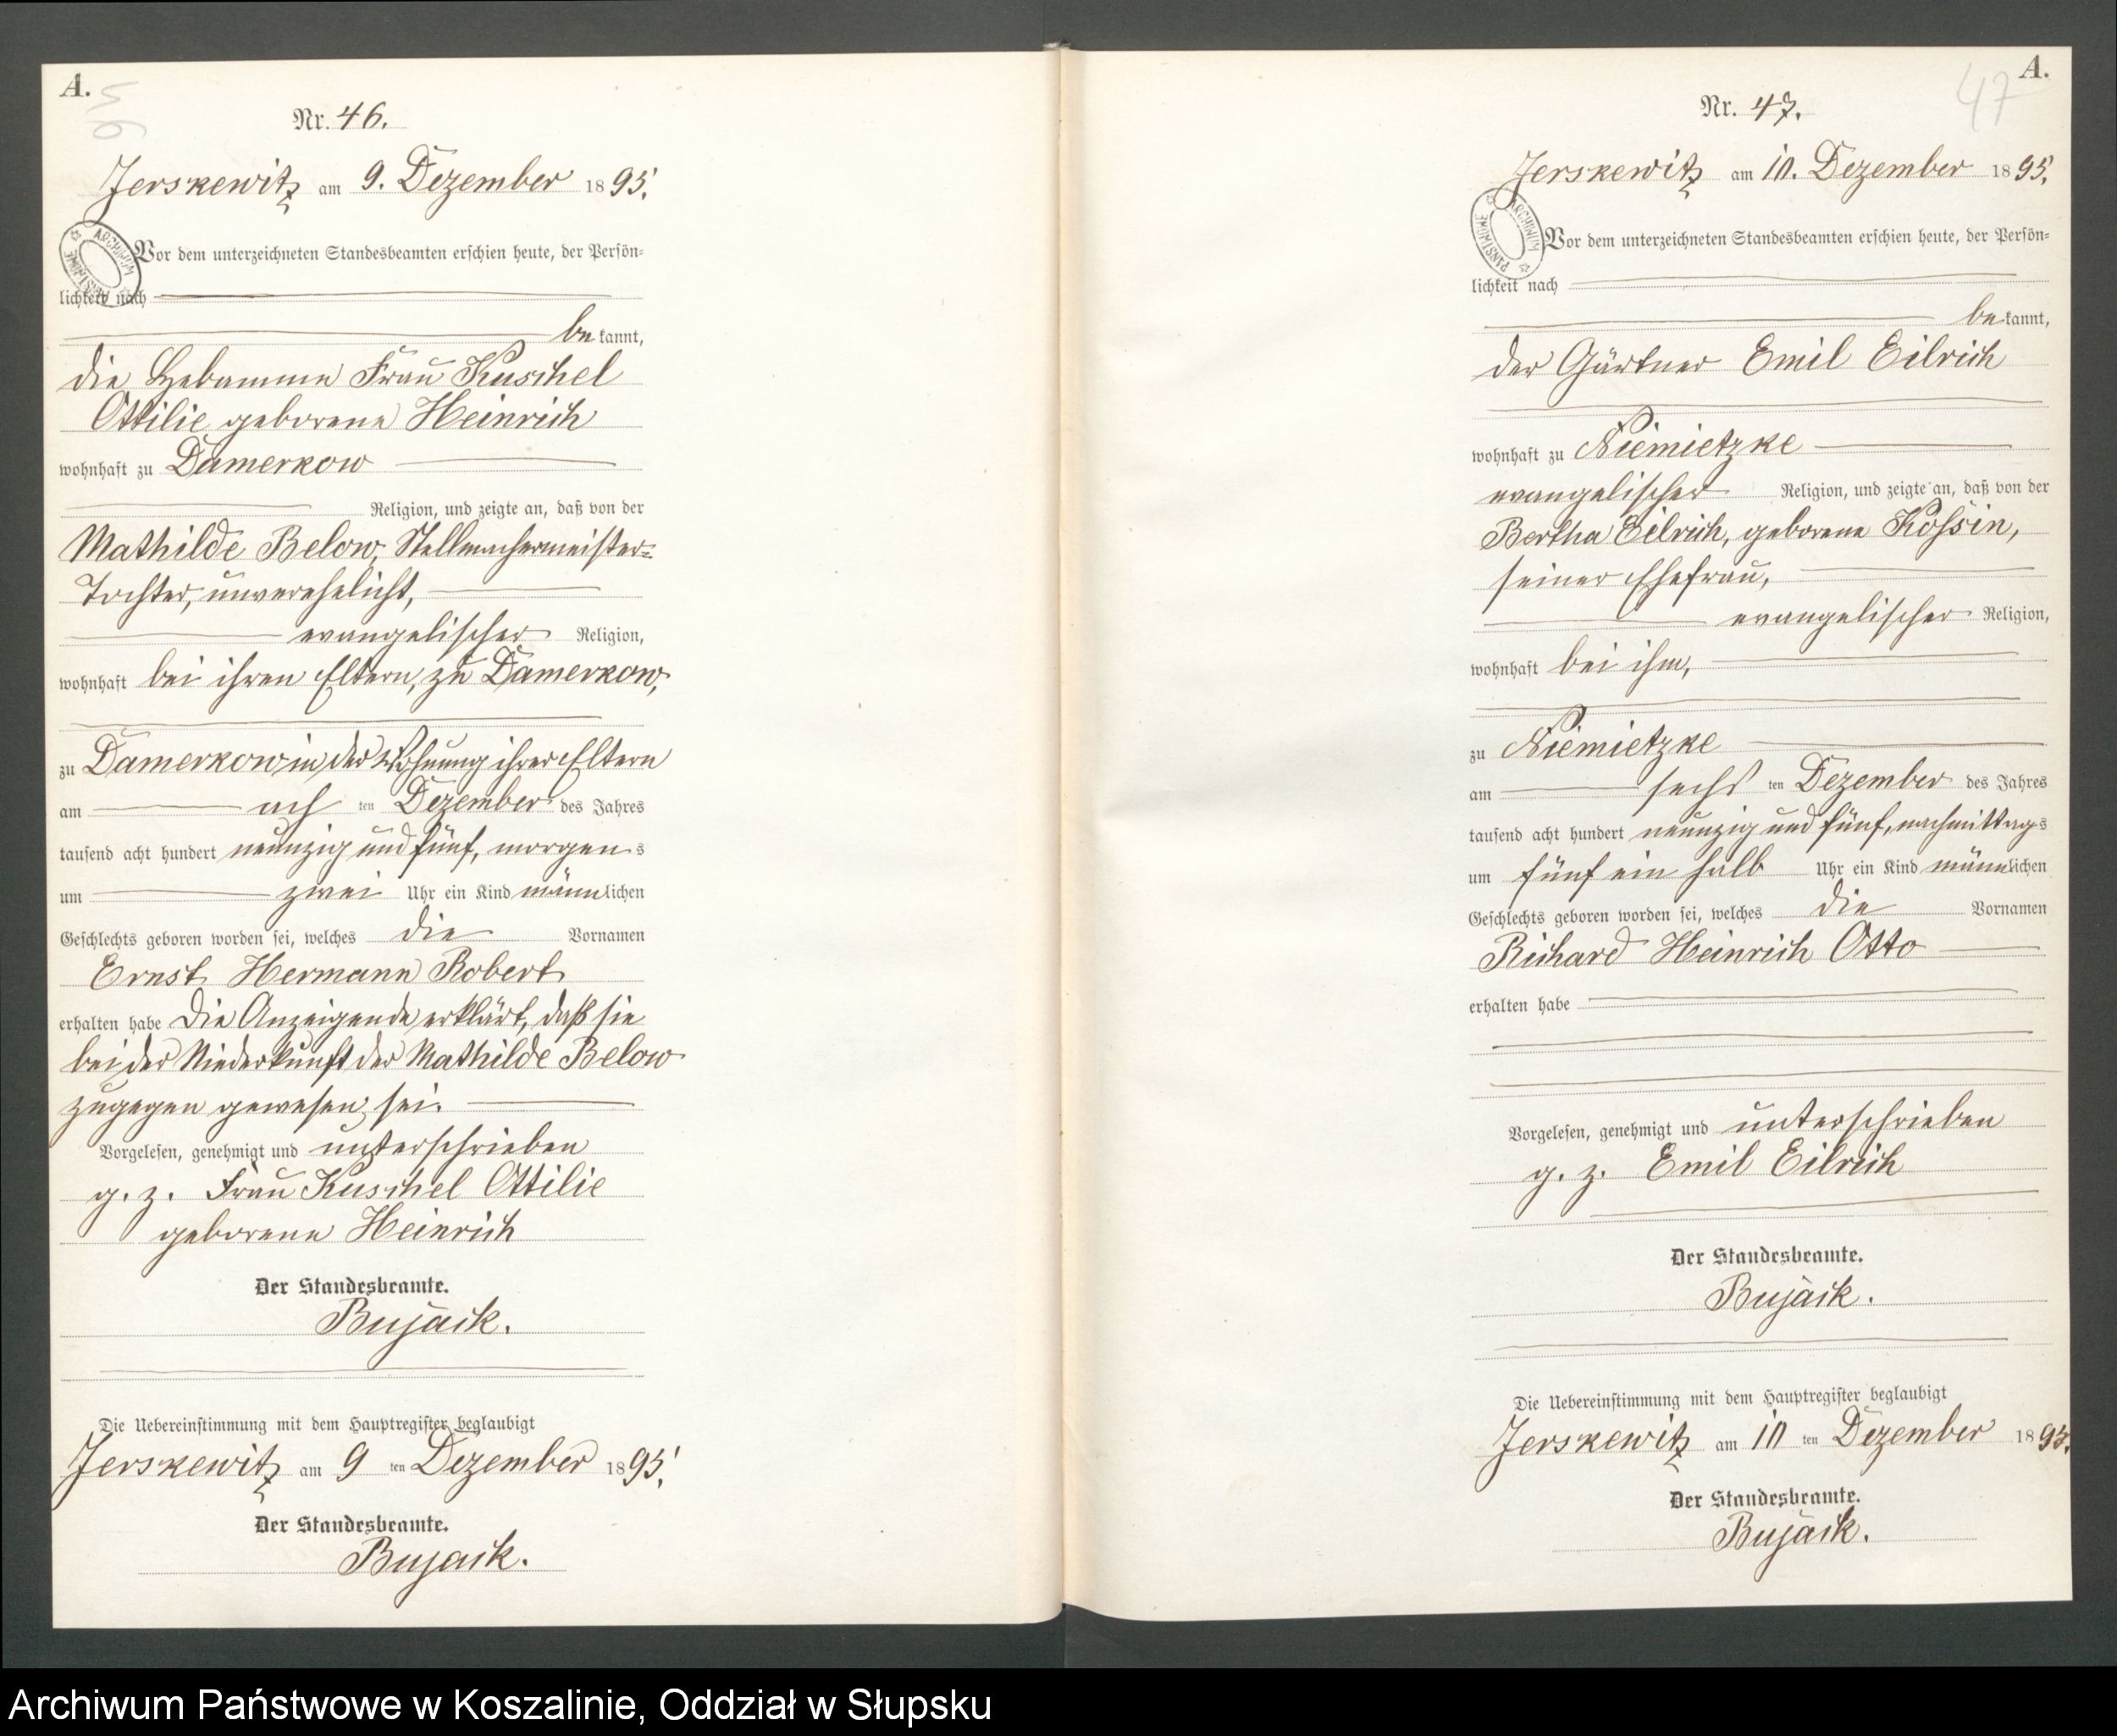 A.
Nr. 46.
Jerskewitz am 9. Dezember 1895.
Vor dem unterzeichneten Standesbeamten erschien heute, der Persön-
lichkeit nach
bekannt,
die Hebamme Frau Kuschel
Ottilie geborene Heinrich
wohnhaft zu Damerkow
Religion, und zeigte an, daß von der
Mathilde Below, Stellmachermeister-
Tochter, unverehelicht,
evangelischer Religion,
wohnhaft bei ihren Eltern, zu Damerkow,
zu Damerkow in der Wohnung ihrer Eltern
am ach ten Dezember des Jahres
tausend acht hundert neunzig und fünf, morgens
um zwei Uhr ein Kind männlichen
Geschlechts geboren worden sei, welches die Vornamen
Ernst Hermann Robert
erhalten habe Die Anzeigende erklärt, daß sie
bei der Niederkunft der Mathilde Below
zugegen gewesen sei.
Vorgelesen, genehmigt und unterschrieben
g. z. Frau Kuschel Ottilie
geborene Heinrich
Der Standesbeamte.
Bujack.
Die Uebereinstimmung mit dem Hauptregister beglaubigt
Jerskewitz am 9 ten Dezember 1895.
Der Standesbeamte.
Bujack.
A.
47
Nr. 47.
Jerskewitz am 10. Dezember 1895.
ARCHIWUM PAŃSTWOWE
Vor dem unterzeichneten Standesbeamten erschien heute, der Persön-
lichkeit nach
bekannt,
der Gärtner Emil Eilrich
wohnhaft zu Niemietzke
evangelischer Religion, und zeigte an, daß von der
Bertha Eilrich, geborene Kossin,
seiner Ehefrau,
evangelischer Religion,
wohnhaft bei ihm,
zu Niemietzke
am sechs ten Dezember des Jahres
tausend acht hundert neunzig und fünf, nachmittags
um fünf ein halb Uhr ein Kind männlichen
Geschlechts geboren worden sei, welches die Vornamen
Richard Heinrich Otto
erhalten habe
Vorgelesen, genehmigt und unterschrieben
g. z. Emil Eilrich
Der Standesbeamte.
Bujack.
Die Uebereinstimmung mit dem Hauptregister beglaubigt
Jerskewitz am 10 ten Dezember 1895.
Der Standesbeamte.
Bujack.
Archiwum Państwowe w Koszalinie, Oddział w Słupsku